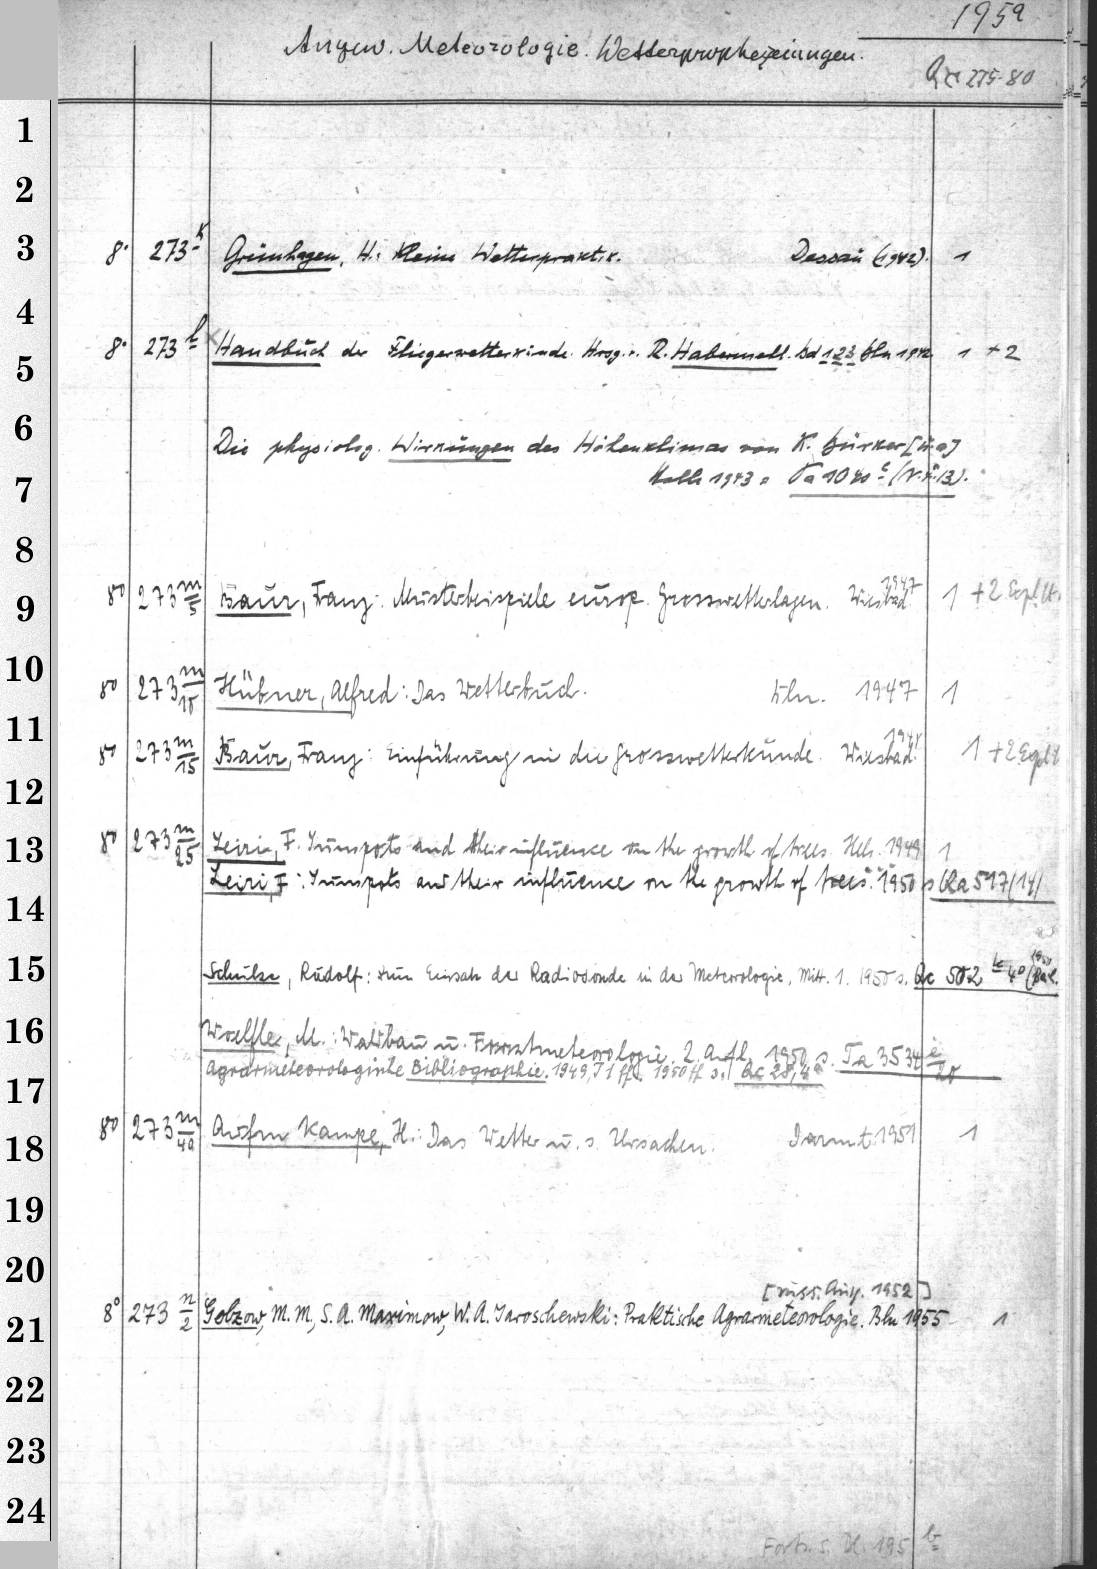 195ª
Angew. Meteorologie. Wetterprophezeiungen.
Qc 275-80
1
2
8° 273 k Grünhagen, H.: Kleine Wetterpraktik. Dessau (1942). 1
3
4
8° 273 l Handbuch der Fliegerwetterkunde. Hrsg. v. R. Habermehl. Bd 1 2 3 Bln 1942 1 +2
5
6
Die physiolog. Wirkungen des Höhenklimas von K. Bürker [u.a]
Halle 1943 =
7
8
8° 273 m/5 Baur, Franz: Musterbeispiele europ. Grosswetterlagen. Wiesbad. 1947 1 +2
9
10
8° 273 m/10 Hübner, Alfred: Das Wetterbuch. Wln. 1947 1
11
8° 273 m/15 Baur, Franz: Einführung in die Grosswetterkunde. Wiesbad. 1 +2
12
8° 273 m/25 Leiri, F. Sunspots and their influence on the growth of trees. Hels. 1949 1
13
Leiri, F.: Sunspots and their influence on the growth of trees. 1950 s Qa 517/14/
14
15
Schulze, Rudolf: Zum Einsatz der Radiosonde in der Meteorologie, Mitt. 1. 1950 s. Qc 502
16
Woelfle, M.: Waldbau u. Forstmeteorologie. 2. Aufl. 1950 s. Ta 3534 i/20
Agrarmeteorologische Bibliographie. 1949, T 1 ff. 1950 ff s. Qc 28,4ª
17
8° 273 m/40 Aufm Kampe, H.: Das Wetter u. s. Ursachen. Darmst. 1951 1
18
19
20
[russ. Ausg. 1952]
8° 273 n/2 Golzow, M. M., S. A. Maximow, W. A. Jaroschewski: Praktische Agrarmeteorologie. Bln 1955 1
21
22
23
24
Forts. s. Bl. 195 b